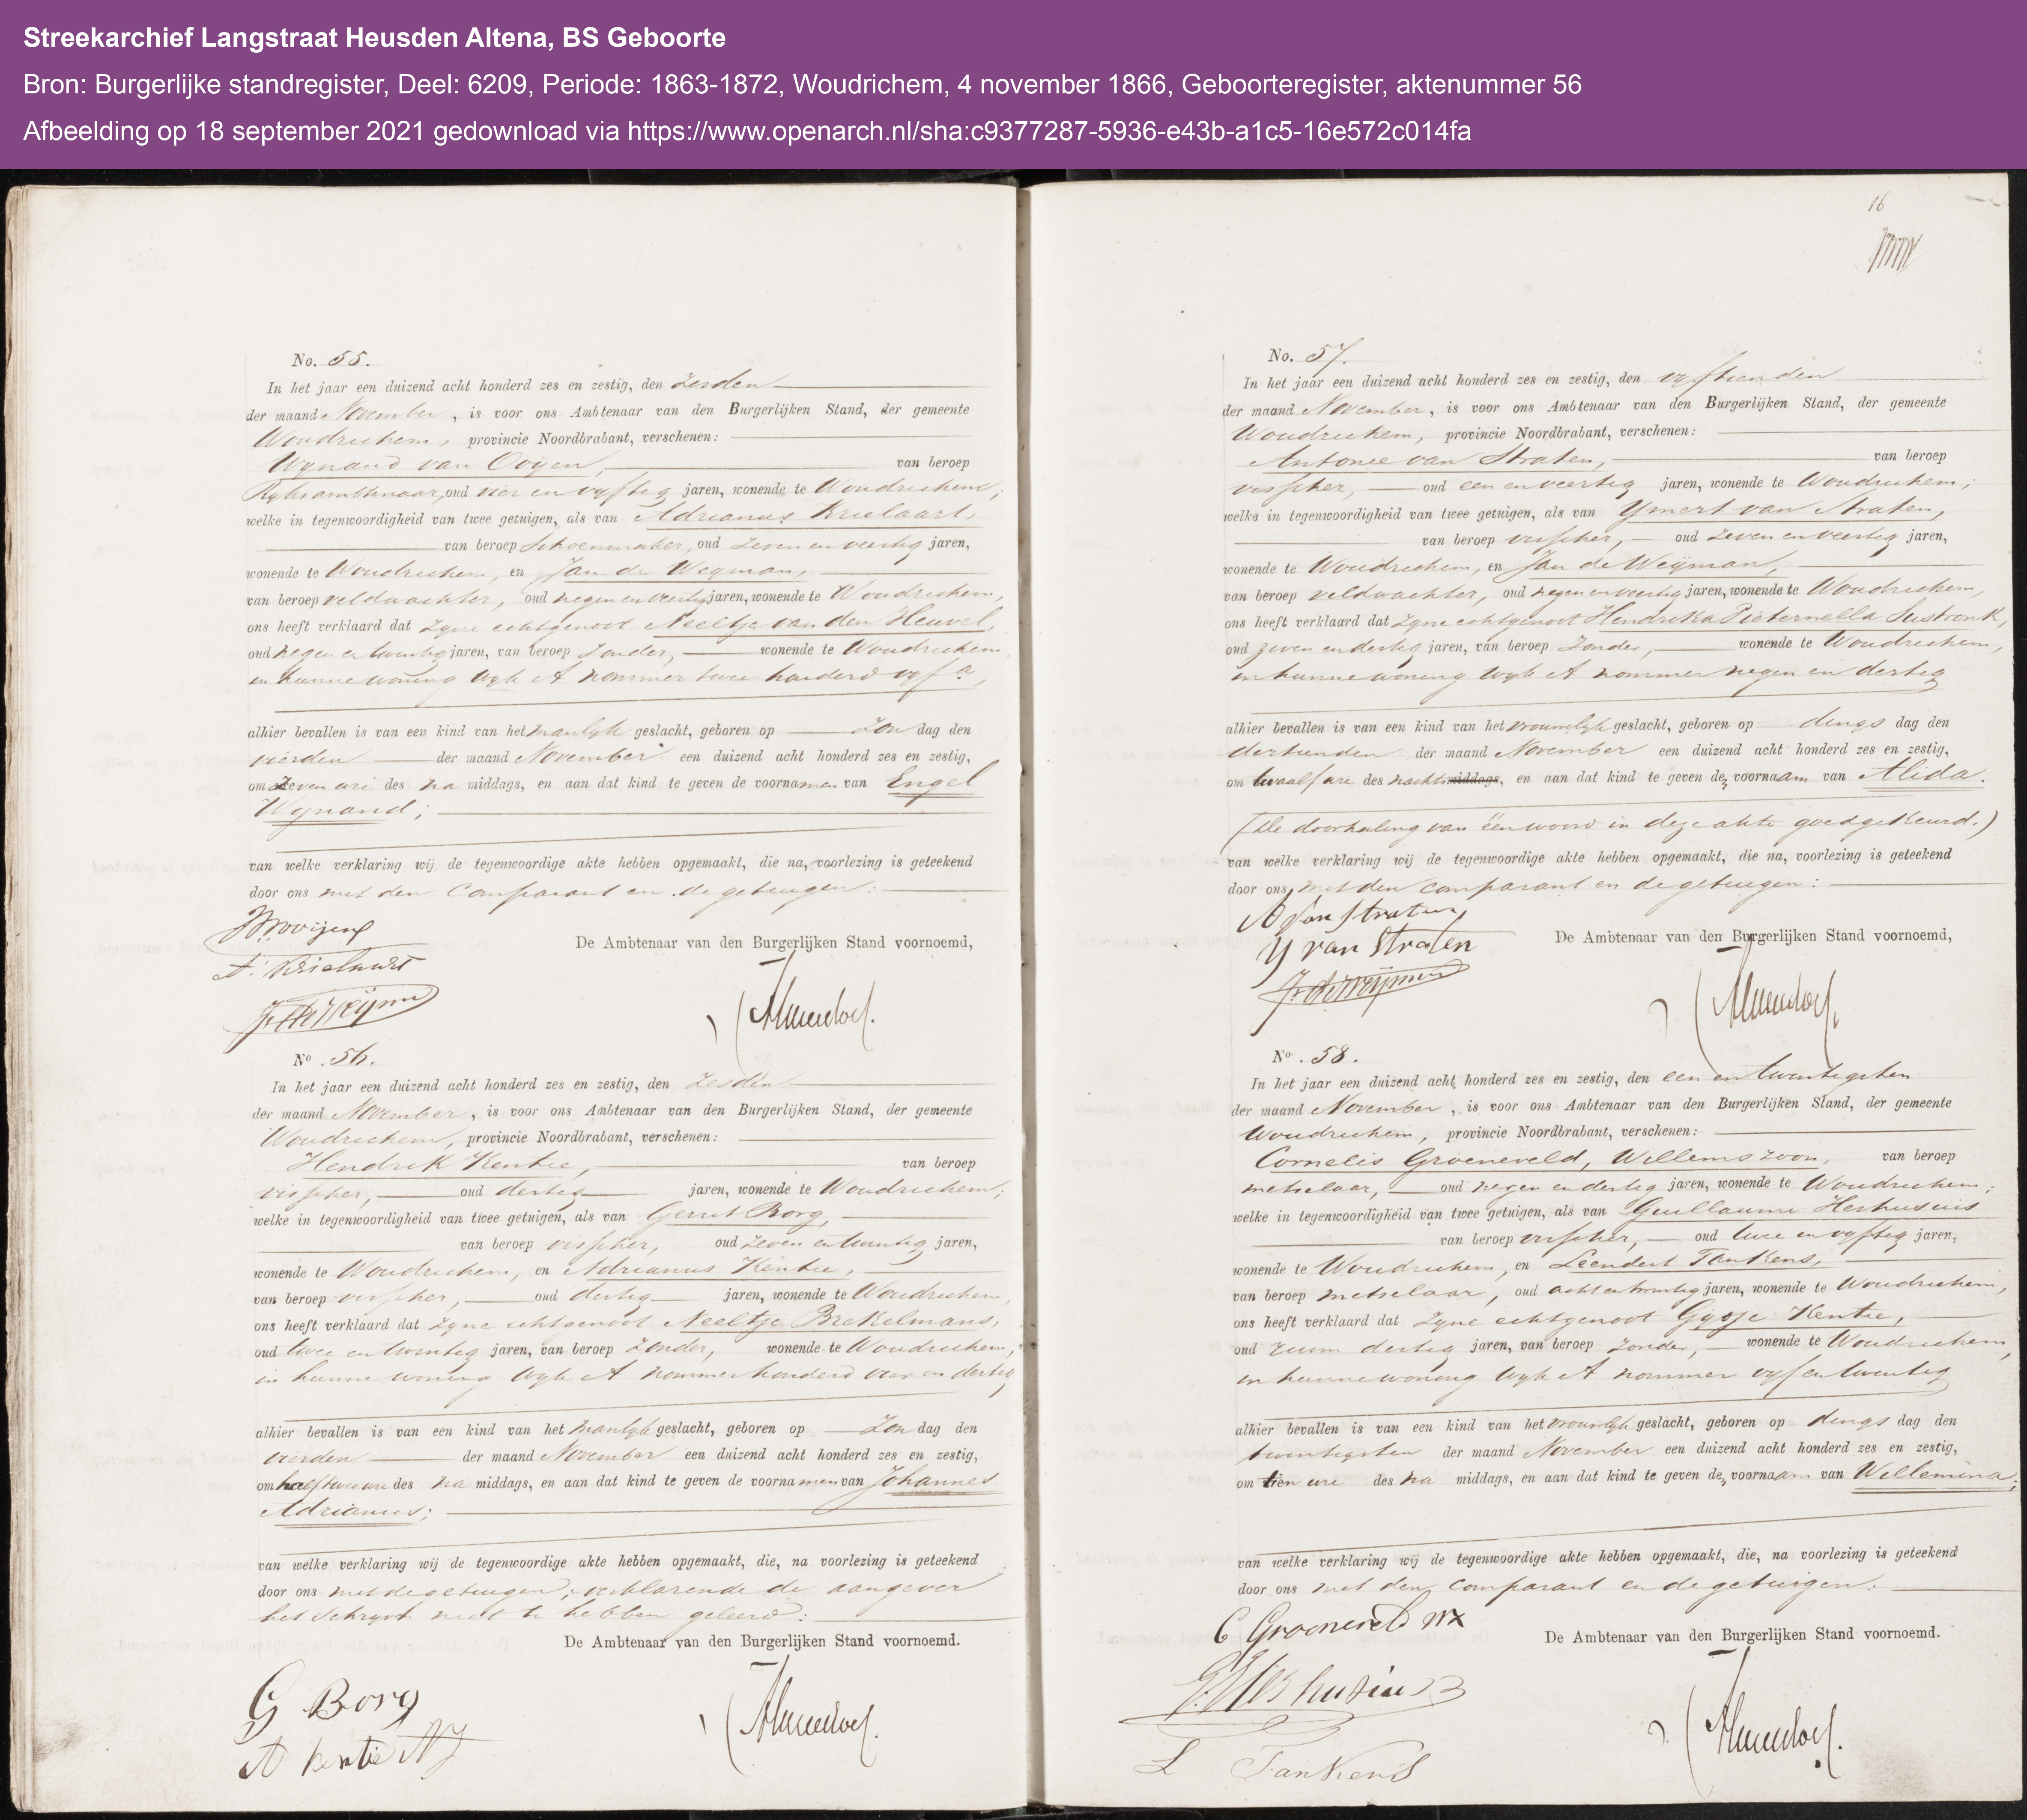 Streekarchief Langstraat Heusden Altena, BS Geboorte
Bron: Burgerlijke standregister, Deel: 6209, Periode: 1863-1872, Woudrichem, 4 november 1866, Geboorteregister, aktenummer 56
Afbeelding op 18 september 2021 gedownload via https://www.openarch.nl/sha:c9377287-5936-e43b-a1c5-16e572c014fa
No. 55.
In het jaar een duizend acht honderd zes en zestig, den zesden
der maand November, is voor ons Ambtenaar van den Burgerlijken Stand, der gemeente
Woudrichem, provincie Noordbrabant, verschenen:
Wynand van Ooijen, van beroep
Ryksambtenaar, oud vier en vyftig jaren, wonende te Woudrichem;
welke in tegenwoordigheid van twee getuigen, als van Adrianus Krielaart,
van beroep Schoenmaker, oud zeven en veertig jaren,
wonende te Woudrichem, en Jan de Weyman,
van beroep veldwachter, oud negen en veertig jaren, wonende te Woudrichem,
ons heeft verklaard dat zyne echtgenoot Neeltje van den Heuvel,
oud negen en twintig jaren, van beroep zonder, wonende te Woudrichem,
in hunne woning Wyk A nommer twee honderd vyf a,
alhier bevallen is van een kind van het manlyk geslacht, geboren op Zon dag den
vierden der maand November een duizend acht honderd zes en zestig,
om zeven ure des na middags, en aan dat kind te geven de voornamen van Engel
Wynand;
van welke verklaring wij de tegenwoordige akte hebben opgemaakt, die na, voorlezing is geteekend
door ons met den Comparant en de getuigen:
De Ambtenaar van den Burgerlijken Stand voornoemd,
A. Krielaart
No. 56.
In het jaar een duizend acht honderd zes en zestig, den zesden
der maand November, is voor ons Ambtenaar van den Burgerlijken Stand, der gemeente
Woudrichem, provincie Noordbrabant, verschenen:
Hendrik Kentie, van beroep
visscher, oud dertig jaren, wonende te Woudrichem;
welke in tegenwoordigheid van twee getuigen, als van Gerrit Borg,
van beroep visscher, oud zeven en twintig jaren,
wonende te Woudrichem, en Adrianus Kentie,
van beroep visscher, oud dertig jaren, wonende te Woudrichem,
ons heeft verklaard dat zyne echtgenoot Neeltje Brekelmans,
oud twee en twintig jaren, van beroep zonder, wonende te Woudrichem,
in hunne woning Wyk A nommer honderd vier en dertig
alhier bevallen is van een kind van het manlyk geslacht, geboren op Zon dag den
vierden der maand November een duizend acht honderd zes en zestig,
om half twee ure des na middags, en aan dat kind te geven de voornamen van Johannes
Adrianus;
van welke verklaring wij de tegenwoordige akte hebben opgemaakt, die, na voorlezing is geteekend
door ons met de getuigen, verklarende de aangever
het schryven niet te hebben geleerd:
De Ambtenaar van den Burgerlijken Stand voornoemd.
G Borg
A Kentie AZ
16
No. 57.
In het jaar een duizend acht honderd zes en zestig, den vyftienden
der maand November, is voor ons Ambtenaar van den Burgerlijken Stand, der gemeente
Woudrichem, provincie Noordbrabant, verschenen:
Antonie van Straten, van beroep
visscher, oud een en veertig jaren, wonende te Woudrichem;
welke in tegenwoordigheid van twee getuigen, als van Ymert van Straten,
van beroep visscher, oud zeven en veertig jaren,
wonende te Woudrichem, en Jan de Weijman,
van beroep veldwachter, oud negen en veertig jaren, wonende te Woudrichem,
ons heeft verklaard dat zyne echtgenoot Hendrika Pieternella Sustronk,
oud zeven en dertig jaren, van beroep zonder, wonende te Woudrichem,
in hunne woning Wyk A nommer negen en dertig
alhier bevallen is van een kind van het vrouwelyk geslacht, geboren op dings dag den
dertienden der maand November een duizend acht honderd zes en zestig,
om twaalf ure des nachts middags, en aan dat kind te geven de, voornaam van Alida.
(De doorhaling van één woord in deze akte goedgekeurd.)
van welke verklaring wij de tegenwoordige akte hebben opgemaakt, die na, voorlezing is geteekend
door ons, met den comparant en de getuigen:
A van Straten
Y van Straten
De Ambtenaar van den Burgerlijken Stand voornoemd,
No. 58.
In het jaar een duizend acht honderd zes en zestig, den een en twintigsten
der maand November, is voor ons Ambtenaar van den Burgerlijken Stand, der gemeente
Woudrichem, provincie Noordbrabant, verschenen:
Cornelis Groeneveld, Willemszoon, van beroep
metselaar, oud negen en dertig jaren, wonende te Woudrichem;
welke in tegenwoordigheid van twee getuigen, als van Guillaume Heshusius
van beroep visscher, oud twee en vyftig jaren,
wonende te Woudrichem, en Leendert Tankens,
van beroep metselaar, oud acht en twintig jaren, wonende te Woudrichem,
ons heeft verklaard dat zyne echtgenoot Gysje Kentie,
oud ruim dertig jaren, van beroep zonder, wonende te Woudrichem,
in hunne woning Wyk A nommer vyf en twintig
alhier bevallen is van een kind van het vrouwelyk geslacht, geboren op dings dag den
twintigsten der maand November een duizend acht honderd zes en zestig,
om tien ure des na middags, en aan dat kind te geven de, voornaam van Willemina;
van welke verklaring wij de tegenwoordige akte hebben opgemaakt, die, na voorlezing is geteekend
door ons met den comparant en de getuigen:
C Groeneveld Wz
De Ambtenaar van den Burgerlijken Stand voornoemd.
G. Heshusius
L Tankens